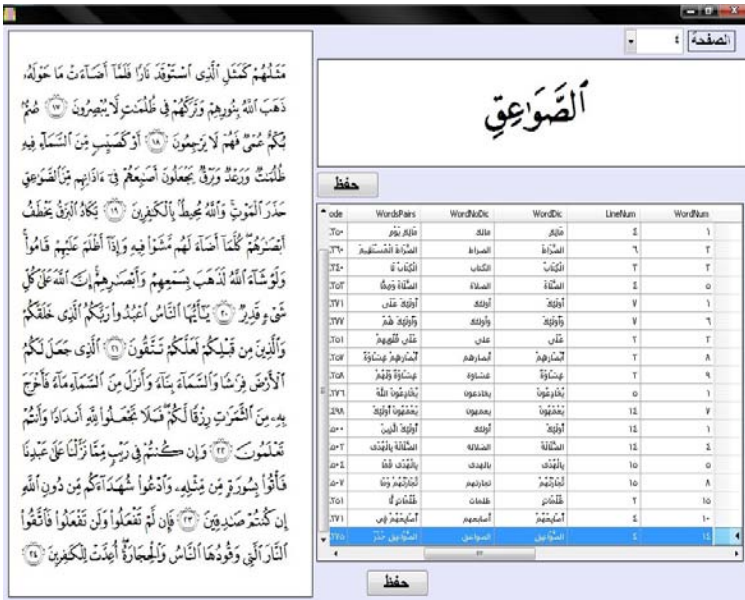 الصفحة ٤
مَثَلُهُمْ كَمَثَلِ ٱلَّذِى ٱسْتَوْقَدَ نَارًا فَلَمَّآ أَضَآءَتْ مَا حَوْلَهُۥ
ذَهَبَ ٱللَّهُ بِنُورِهِمْ وَتَرَكَهُمْ فِى ظُلُمَٰتٍ لَّا يُبْصِرُونَ ١٧ صُمٌّۢ
بُكْمٌ عُمْىٌ فَهُمْ لَا يَرْجِعُونَ ١٨ أَوْ كَصَيِّبٍ مِّنَ ٱلسَّمَآءِ فِيهِ
ظُلُمَٰتٌ وَرَعْدٌ وَبَرْقٌ يَجْعَلُونَ أَصَٰبِعَهُمْ فِىٓ ءَاذَانِهِم مِّنَ ٱلصَّوَٰعِقِ
حَذَرَ ٱلْمَوْتِ وَٱللَّهُ مُحِيطٌۢ بِٱلْكَٰفِرِينَ ١٩ يَكَادُ ٱلْبَرْقُ يَخْطَفُ
أَبْصَٰرَهُمْ كُلَّمَآ أَضَآءَ لَهُم مَّشَوْا۟ فِيهِ وَإِذَآ أَظْلَمَ عَلَيْهِمْ قَامُوا۟
وَلَوْ شَآءَ ٱللَّهُ لَذَهَبَ بِسَمْعِهِمْ وَأَبْصَٰرِهِمْ إِنَّ ٱللَّهَ عَلَىٰ كُلِّ
شَىْءٍ قَدِيرٌ ٢٠ يَٰٓأَيُّهَا ٱلنَّاسُ ٱعْبُدُوا۟ رَبَّكُمُ ٱلَّذِى خَلَقَكُمْ
وَٱلَّذِينَ مِن قَبْلِكُمْ لَعَلَّكُمْ تَتَّقُونَ ٢١ ٱلَّذِى جَعَلَ لَكُمُ
ٱلْأَرْضَ فِرَٰشًا وَٱلسَّمَآءَ بِنَآءً وَأَنزَلَ مِنَ ٱلسَّمَآءِ مَآءً فَأَخْرَجَ
بِهِۦ مِنَ ٱلثَّمَرَٰتِ رِزْقًا لَّكُمْ فَلَا تَجْعَلُوا۟ لِلَّهِ أَندَادًا وَأَنتُمْ
تَعْلَمُونَ ٢٢ وَإِن كُنتُمْ فِى رَيْبٍ مِّمَّا نَزَّلْنَا عَلَىٰ عَبْدِنَا
فَأْتُوا۟ بِسُورَةٍ مِّن مِّثْلِهِۦ وَٱدْعُوا۟ شُهَدَآءَكُم مِّن دُونِ ٱللَّهِ
إِن كُنتُمْ صَٰدِقِينَ ٢٣ فَإِن لَّمْ تَفْعَلُوا۟ وَلَن تَفْعَلُوا۟ فَٱتَّقُوا۟
ٱلنَّارَ ٱلَّتِى وَقُودُهَا ٱلنَّاسُ وَٱلْحِجَارَةُ أُعِدَّتْ لِلْكَٰفِرِينَ ٢٤
ٱلصَّوَٰعِقِ
حفظ
ode WordsPairs WordNoDic WordDic LineNum WordNum
مَالِكِ يَوْمِ مالك مَالِكِ ٤ ١
الصِّرَاطَ الْمُسْتَقِيمَ الصراط الصِّرَاطَ ٦ ٢
الْكِتَابُ لَا الكتاب الْكِتَابُ ٢ ٢
الصَّلَاةَ وَمِمَّا الصلاة الصَّلَاةَ ٤ ٥
أُولَئِكَ عَلَى أولئك أُولَئِكَ ٧ ١
وَأُولَئِكَ هُمُ وأولئك وَأُولَئِكَ ٧ ٦
عَلَى قُلُوبِهِمْ على عَلَى ٢ ٢
أَبْصَارِهِمْ غِشَاوَةٌ أبصارهم أَبْصَارِهِمْ ٢ ٨
غِشَاوَةٌ وَلَهُمْ غشاوة غِشَاوَةٌ ٢ ٩
يُخَادِعُونَ اللَّهَ يخادعون يُخَادِعُونَ ٥ ١
يَعْمَهُونَ أُولَئِكَ يعمهون يَعْمَهُونَ ١٤ ٧
أُولَئِكَ الَّذِينَ أولئك أُولَئِكَ ١٤ ١
الضَّلَالَةَ بِالْهُدَى الضلالة الضَّلَالَةَ ١٤ ٤
بِالْهُدَى فَمَا بالهدى بِالْهُدَى ١٥ ٥
تِجَارَتُهُمْ وَمَا تجارتهم تِجَارَتُهُمْ ١٥ ٨
ظُلُمَاتٍ لَا ظلمات ظُلُمَاتٍ ٢ ١٥
أَصَابِعَهُمْ فِي أصابعهم أَصَابِعَهُمْ ٤ ١٠
الصَّوَاعِقِ حَذَرَ الصواعق الصَّوَاعِقِ ٤ ١٤
حفظ